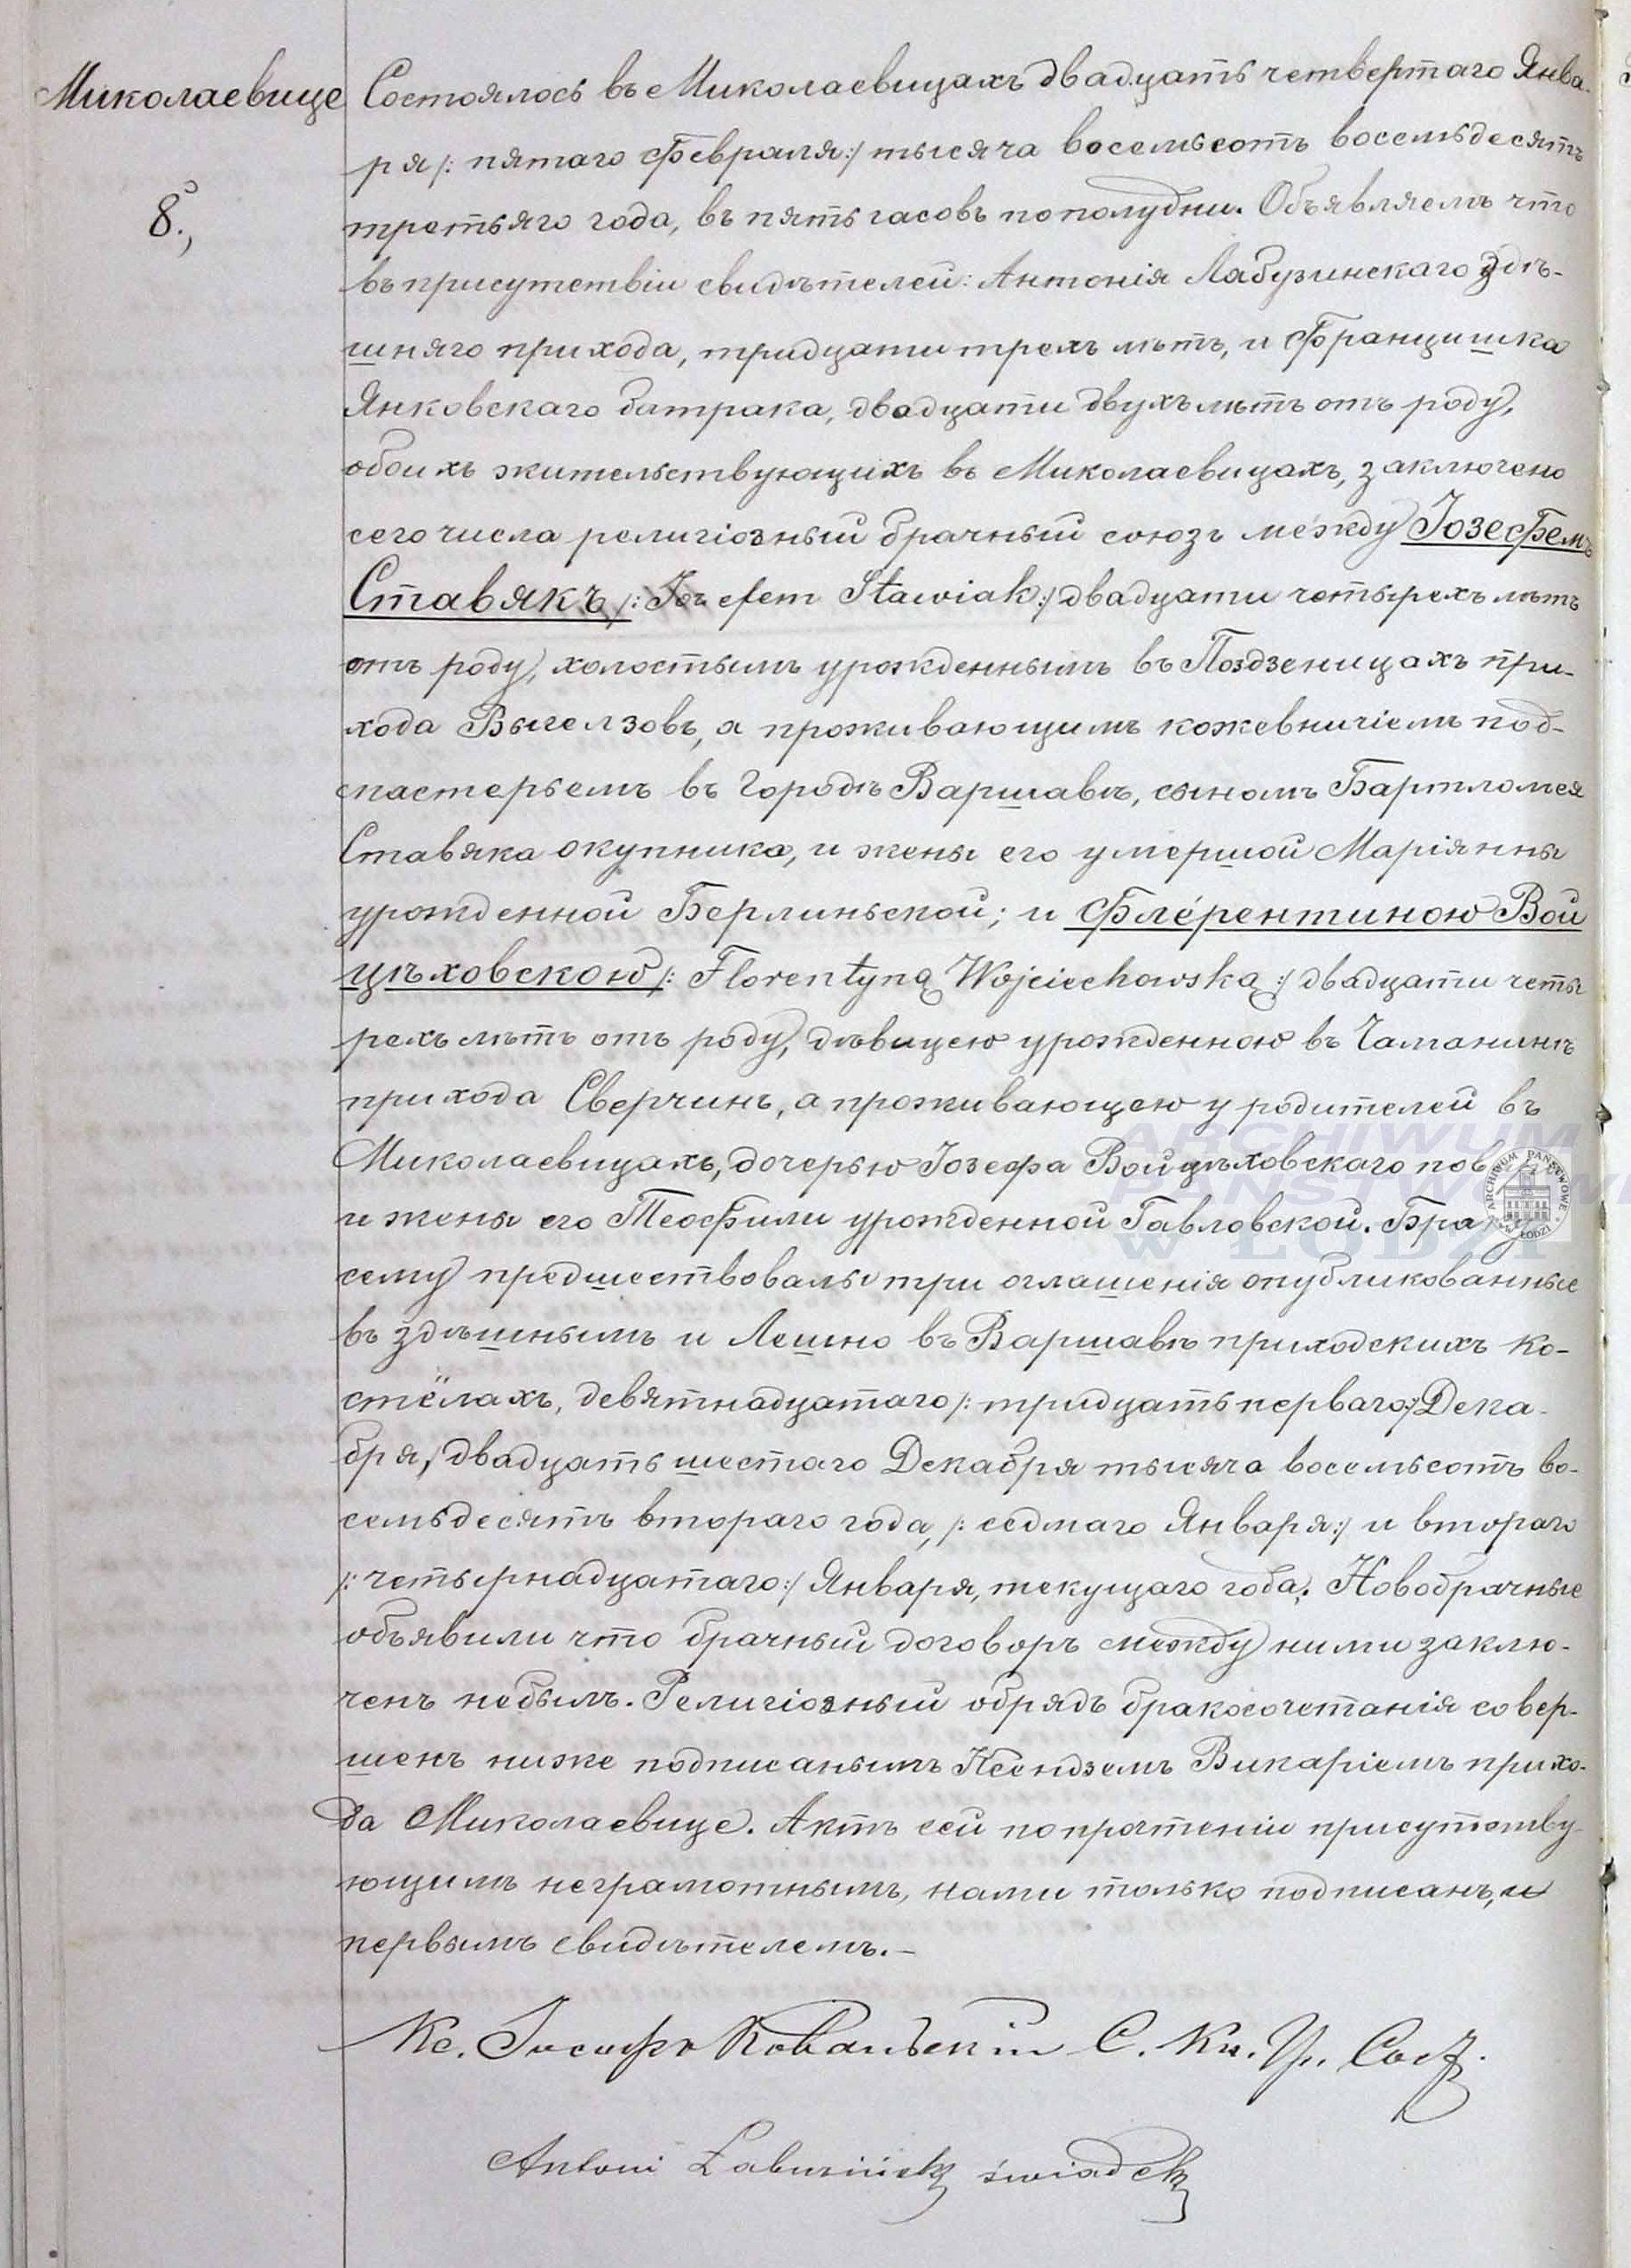 Миколаевице
8.,
Состоялось въ Миколаевицахъ двадцать четвертаго Янва-
ря /: пятаго Февраля:/ тысяча восемьсотъ восемьдесятъ
третьяго года, въ пять часовъ пополудни. Объявляемъ что
въ присутствіи свидѣтелей: Антонія Лабузинскаго здѣ-
шняго прихода, тридцати трехъ лѣтъ, и Францишка
Янковскаго батрака, двадцати двухъ лѣтъ отъ роду,
обоихъ жительствующихъ въ Миколаевицахъ, заключено
сего числа религіозный брачный союзъ между Іозефемъ
Ставякъ /: Józefem Stawiak:/ двадцати четырехъ лѣтъ
отъ роду, холостымъ урожденнымъ въ Поздзеницахъ при-
хода Выгелзовъ, а проживающимъ кожевничіемъ под-
мастерьемъ въ городѣ Варшавѣ, сыномъ Бартломея
Ставяка окупника, и жены его умершой Маріянны
урожденной Берлиньской; и Флерентиною Вой
цѣховскою /: Florentyną Wojciechowską:/ двадцати четы
рехъ лѣтъ отъ роду, дѣвицею урожденною въ Чаманинѣ
прихода Сверчинъ, а проживающею у родителей въ
Миколаевицахъ, дочерью Іозефа Войцѣховскаго
и жены его Теофили урожденной Гавловской. Браку
сему предшествовалы три оглашенія опубликованные
въ здѣшнымъ и Лешно въ Варшавѣ приходскихъ ко-
стёлахъ, девятнадцатаго /: тридцать перваго:/ Дека-
бря, двадцать шестаго Декабря тысяча восемьсотъ во-
семьдесятъ втораго года, /: седмаго Января:/ и втораго
/: четырнадцатаго:/ Января, текущаго года. Новобрачные
объявили что брачный договоръ между ними заклю-
ченъ небылъ. Религіозный обрядъ бракосочетанія совер-
шенъ ниже подписанымъ Ксендземъ Викаріемъ прихо-
да Миколаевице. Актъ сей по прочтеніи присутству-
ющимъ неграмотнымъ, нами только подписанъ, и
первымъ свидѣтелемъ.-
Кс. Іосифъ Ковальскій С. Кн. Гр. Сост.
Antoni Łabuziński świadek
ARCHIWUM
PAŃSTWOWE
W ŁODZI
ARCHIWUM PAŃSTWOWE W ŁODZI